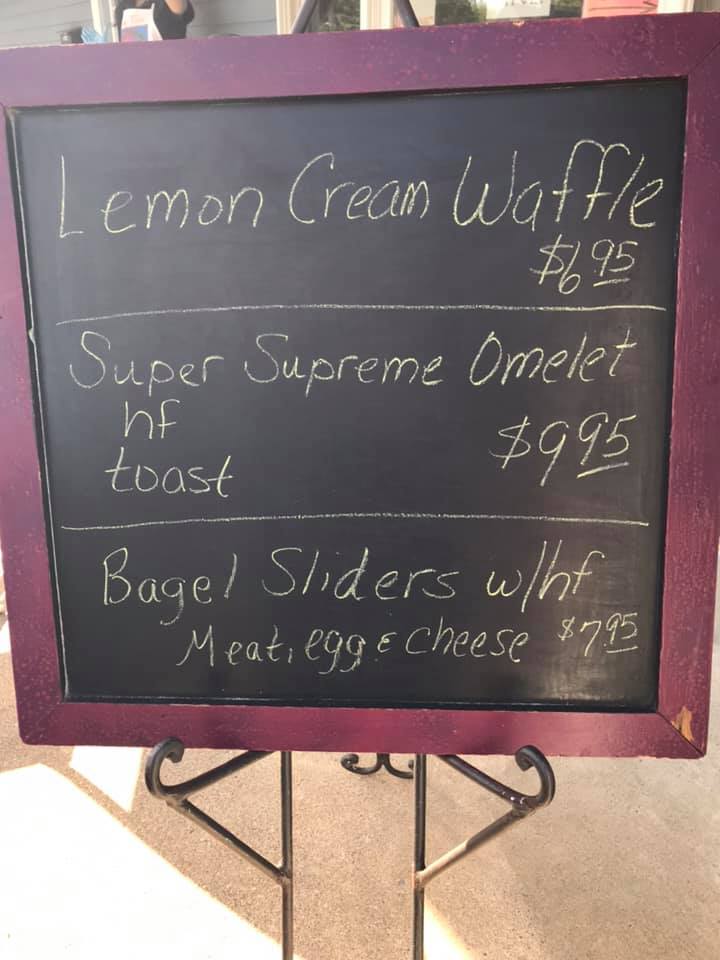 Lemon Cream Waffle
$6.95
Super Supreme Omelet
hf
toast $9.95
Bagel Sliders w/hf
Meat, egg & cheese $7.95